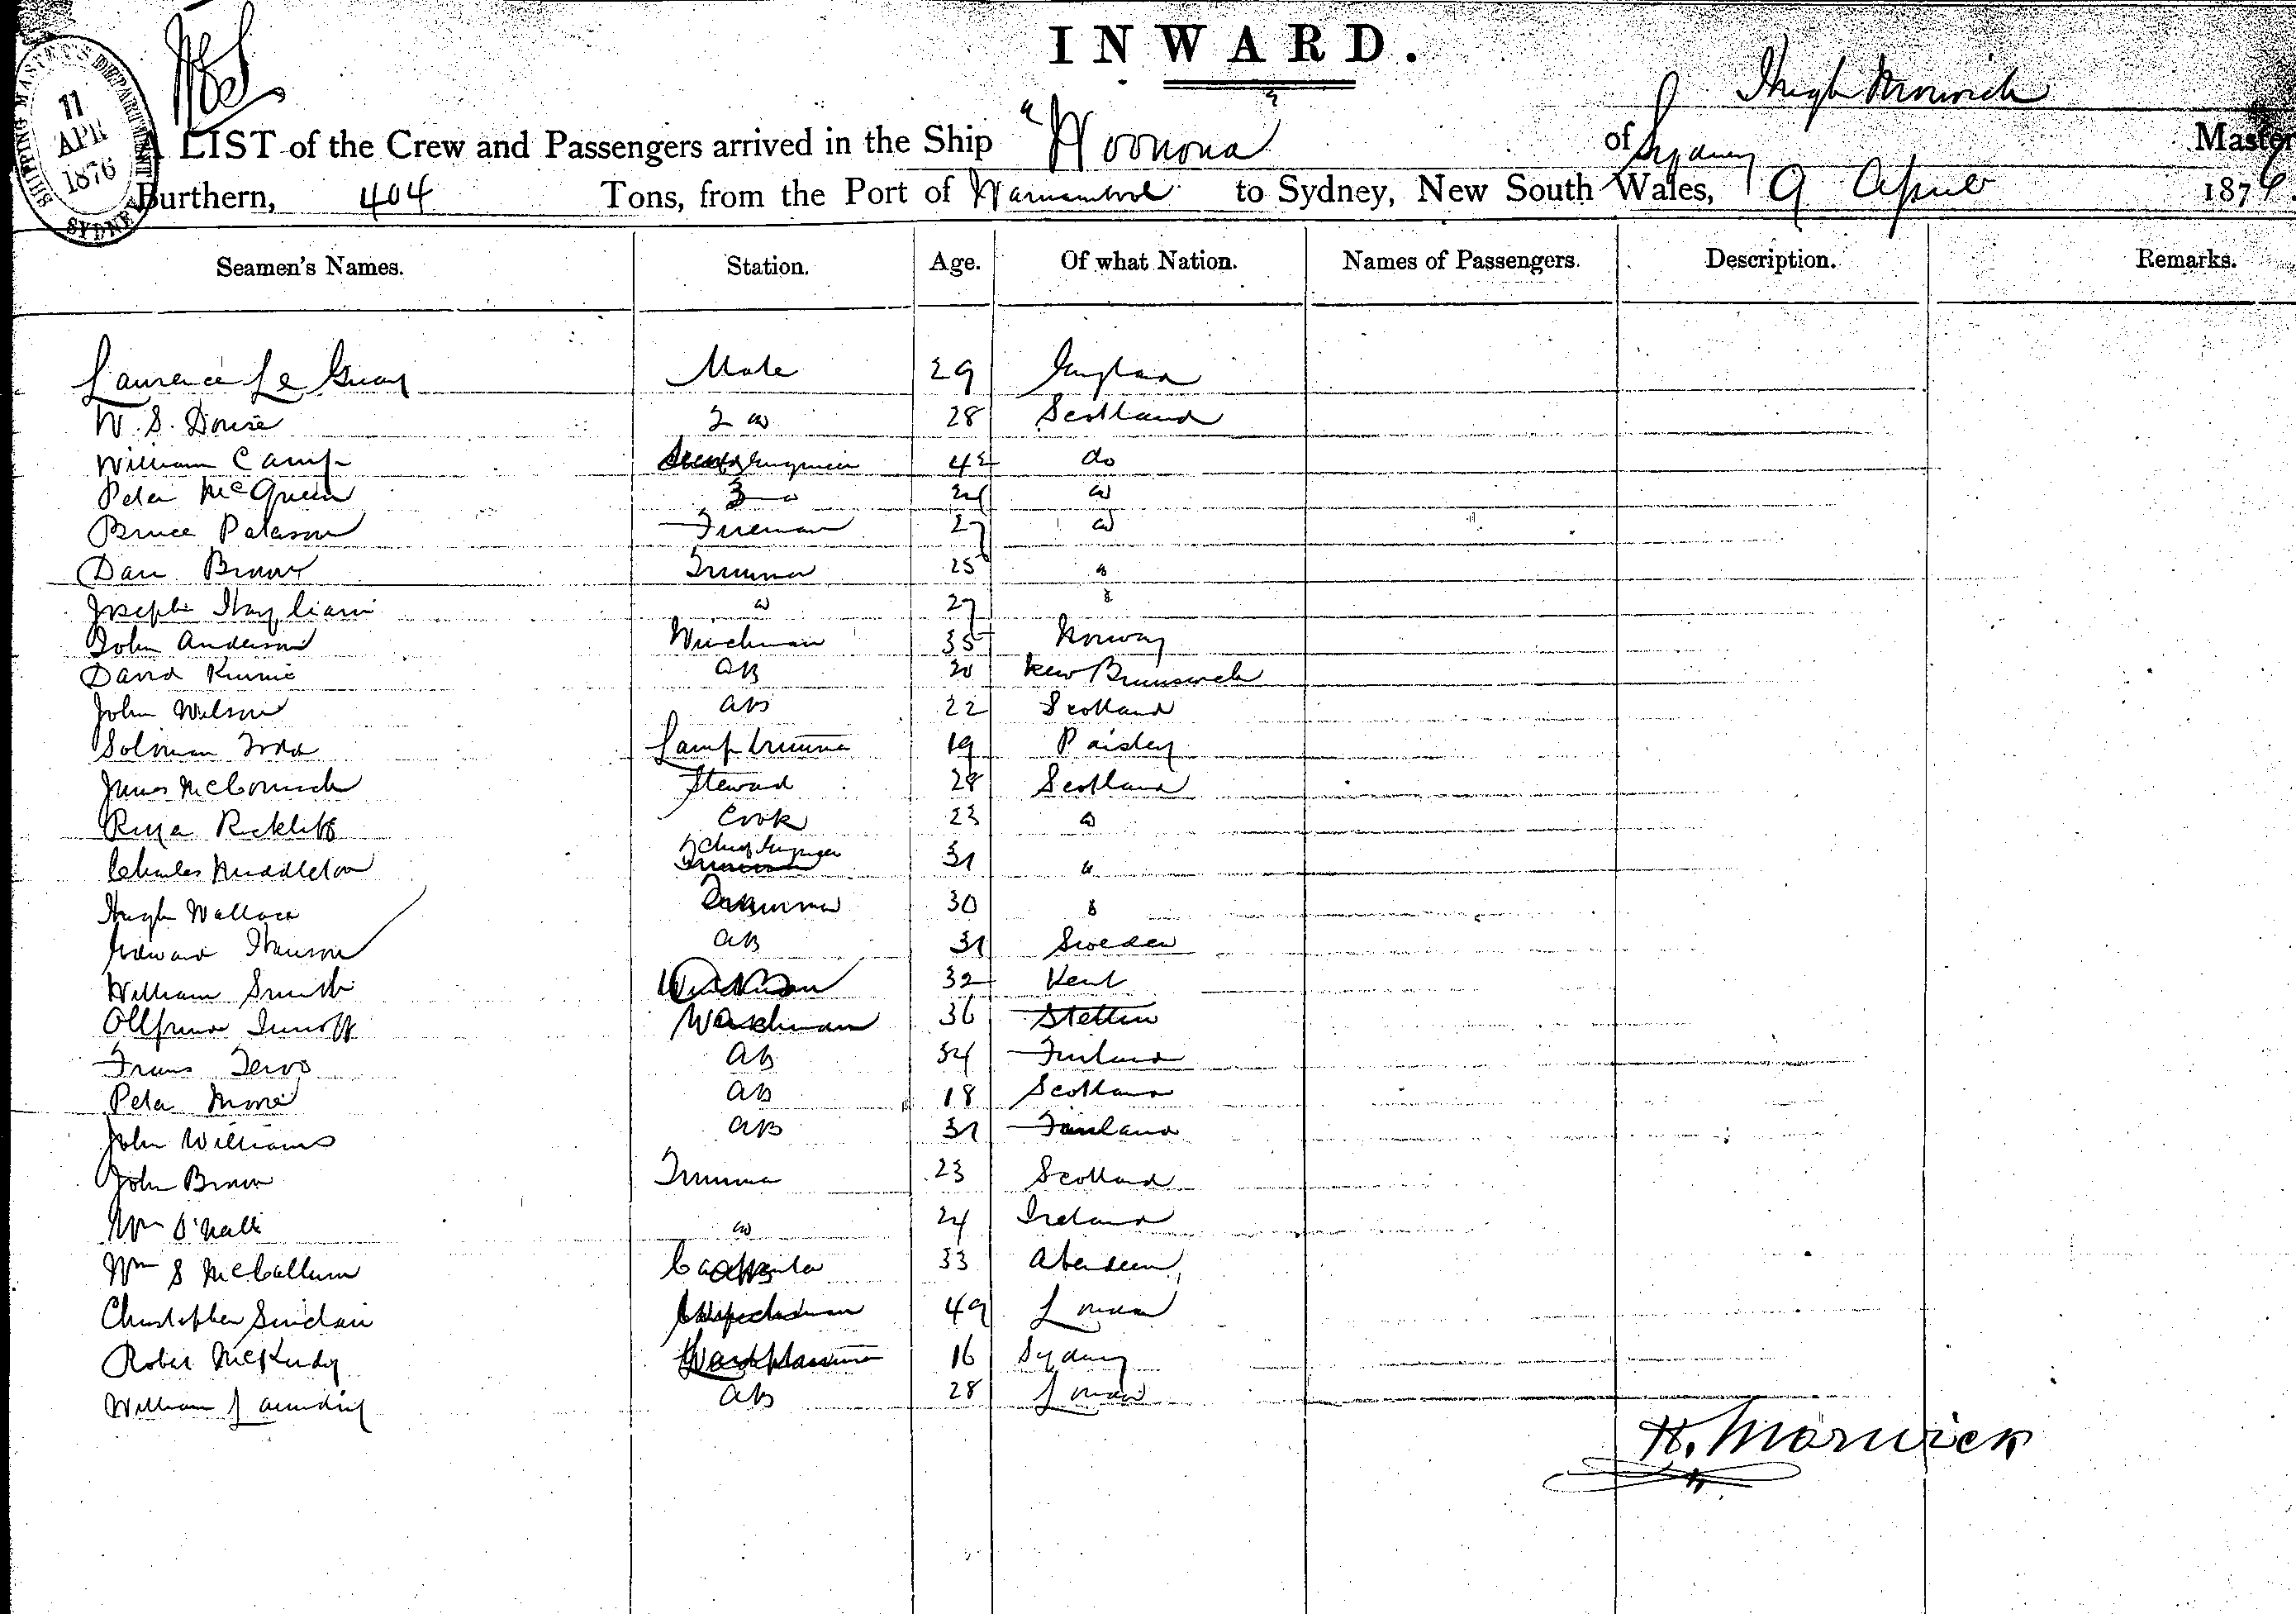 INWARD.
SHIPPING MASTER'S DEPARTMENT 11 APR 1876 SYDNEY
Hugh Morwick
A LIST of the Crew and Passengers arrived in the Ship "Woonona" of Sydney Master
Burthern, 404 Tons, from the Port of to Sydney, New South Wales, 9 April 1876.
Seamen's Names. Station. Age. Of what Nation. Names of Passengers. Description. Remarks.
Laurence Le Guay Mate 29 England
W. S. 2 do 28 Scotland
William Camp Engineer 42 do
Peter McQueen 3 do do
Bruce Paterson Fireman 27 do
Dan Brown Trimmer 25 "
Joseph do 27 "
John Anderson Winchman 35 Norway
David Kinnie AB 20 New Brunswick
John Wilson AB 22 Scotland
Soloman Todd Lamp trimmer 19 Paisley
James McCormick Steward 28 Scotland
Rickliff Cook 23 do
Charles Middleton 2 Chief Engineer 31 "
Hugh Wallace 30 "
Edward Hanson AB 31 Sweden
William Smith 32 Kent
36 Stettin
Frans AB 34 Finland
Peter AB 18 Scotland
John Williams AB 31
John Brown Trimmer 23 Scotland
Wm do 24 Ireland
Wm S McCallum 33 Aberdeen
Christopher Sinclair 49 London
Robert 16 Sydney
William AB 28 London
H. Morwick